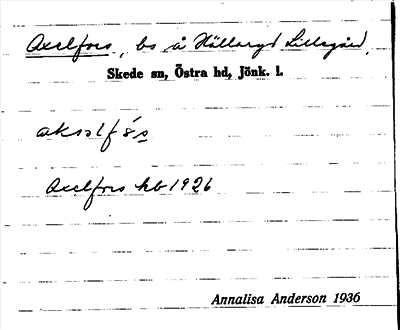 Axelfors, bs å Hällaryd Lillegård,
Skede sn, Östra hd, Jönk. l.
Axelfors hb 1926
Annalisa Anderson 1936